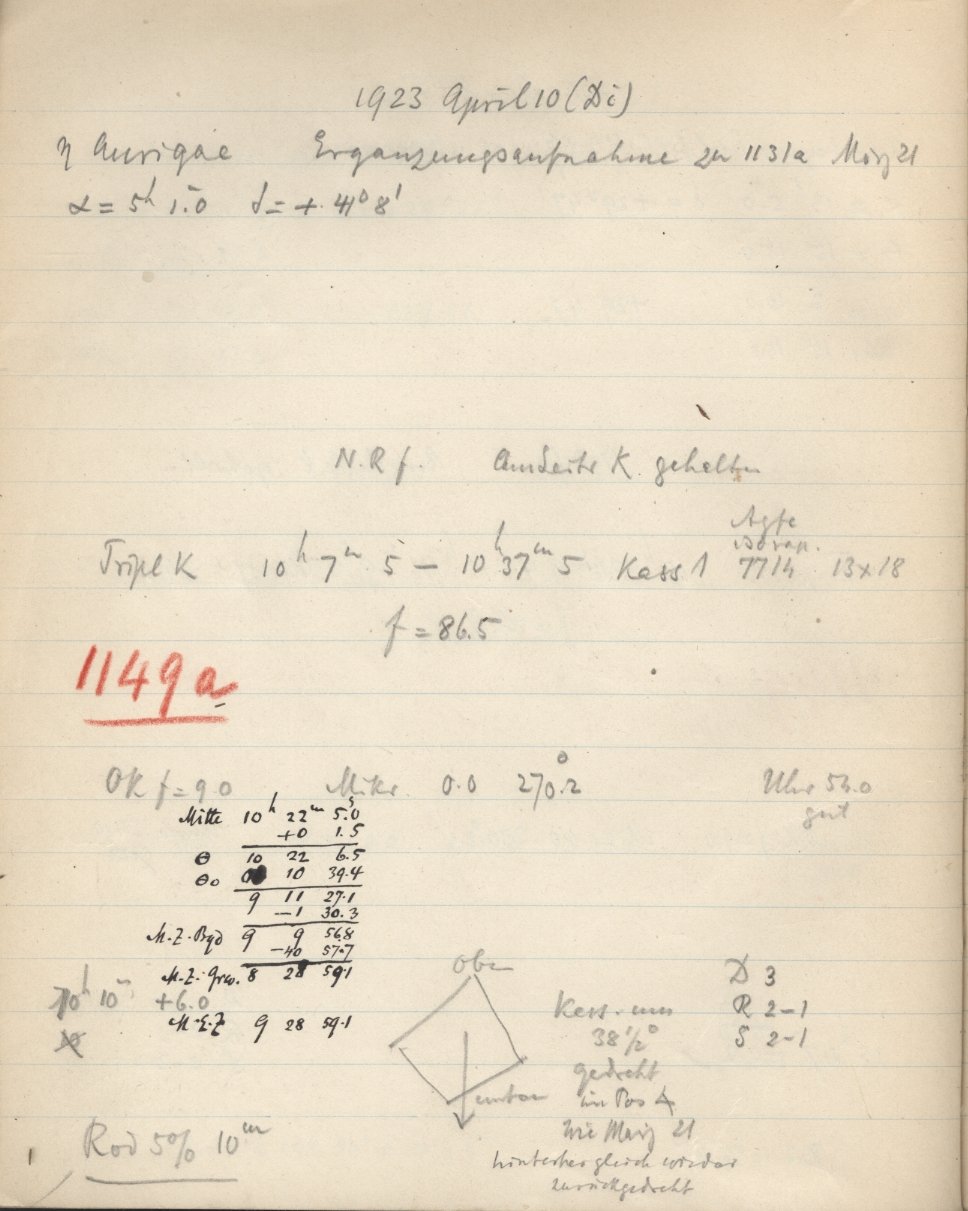 1923 April 10 (Di)
η Aurigae Ergänzungsaufnahme zu 1131a März 21
α = 5h 1.0 δ = + 41° 8'
N. R f. Am Leitr K. gehalten
Agfa
isorap.
Tripl K 10h 7m 5 – 10h 37m 5 Kass 1 7714 13x18
f = 86.5
1149a
OK f = 9.0 Mikr. 0.0 270.°2 Uhr 54.0
gut
Mitte 10h 22m 5.s0
+0 1.5
θ 10 22 6.5
θ0 10 39.4
9 11 27.1
–1 30.3
M.Z. Bgd 9 9 56.8
–40 57.7
M.Z. Grw. 8 28 59.1
10h 10m +6.0
M.E.Z 9 28 59.1
oben
unten
Kass. um
38 1/2°
gedreht
in Pos 4
wie März 21
hinterher gleich wieder
zurückgedreht
D 3
R 2–1
S 2–1
Rod 5% 10m